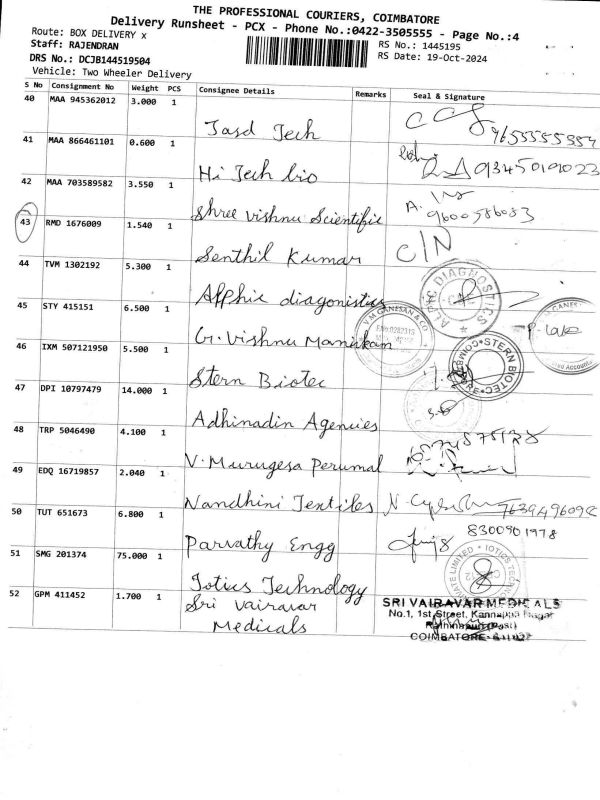 THE PROFESSIONAL COURIERS, COIMBATORE
Delivery Runsheet - PCX - Phone No.:0422-3505555 - Page No.:4
Route: BOX DELIVERY x
RS No.: 1445195
Staff: RAJENDRAN
RS Date: 19-Oct-2024
DRS No.: DCJB144519504
Vehicle: Two Wheeler Delivery
S No Consignment No Weight PCS Consignee Details Remarks Seal & Signature
40 MAA 945362012 3.000 1
Tasd Tech 9655555357
41 MAA 866461101 0.600 1
Hi Tech bio 9345019023
42 MAA 703589582 3.550 1
Shree Vishnu Scientific 9600586083
43 RMD 1676009 1.540 1
Senthil Kumar C/N
44 TVM 1302192 5.300 1
Alphic diagonistics
45 STY 415151 6.500 1
G. Vishnu Manikam
46 IXM 507121950 5.500 1
Stern Biotec
47 DPI 10797479 14.000 1
Adhinadin Agencies
48 TRP 5046490 4.100 1
V. Murugesa Perumal
49 EDQ 16719857 2.040 1
Nandhini Textiles
50 TUT 651673 6.800 1
8300901978
Parvathy Engg
51 SMG 201374 75.000 1
Iotics Technology
52 GPM 411452 1.700 1
Sri Vairavar
Medicals
SRI VAIRAVAR MEDICALS
No.1, 1st Street, Kannappa Nagar
COIMBATORE